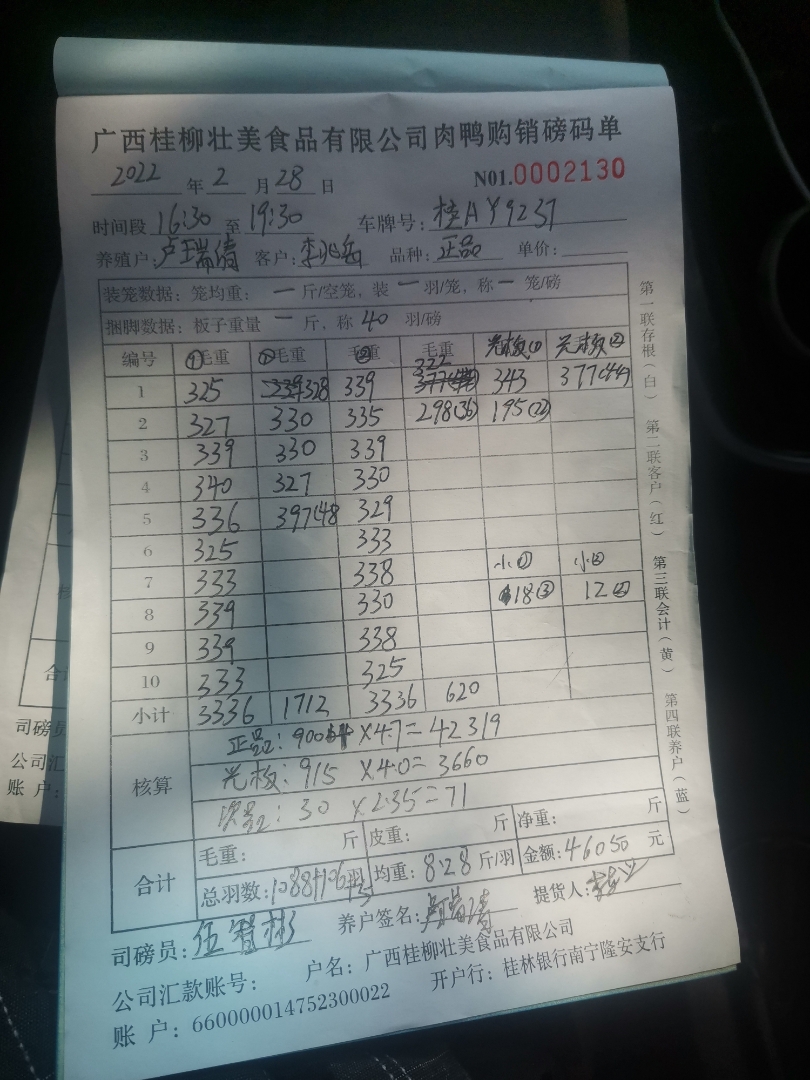 广西桂柳壮美食品有限公司肉鸭购销磅码单
2022 年 2 月 28 日 N01.0002130
时间段 16:30 至 19:30 车牌号: 桂AY9237
养殖户: 卢瑞清 客户: 李兆岳 品种: 正品 单价:
装笼数据: 笼均重: 一 斤/空笼, 装 一 羽/笼, 称 一 笼/磅
捆脚数据: 板子重量 一 斤, 称 40 羽/磅
编号 ①毛重 ②毛重 ②毛重 毛重 光板(1) 光板(2)
1 325 328 339 322 343 377(44)
2 327 330 335 298(36) 195(22)
3 339 330 339
4 340 327 330
5 336 397(48 329
6 325 333
7 333 338 小① 小②
8 339 330 18③ 12②
9 339 338
10 333 325
小计 3336 1712 3336 620
核算
正品: 9004 ×4.7=42319
光板: 915 ×4.0=3660
次品: 30 ×2.35=71
合计
毛重: 斤 皮重: 斤 净重: 斤
总羽数: 1088+106+5 羽 均重: 8.28 斤/羽 金额: 46050 元
司磅员: 伍智彬 养户签名: 卢瑞清 提货人:
公司汇款账号: 户名: 广西桂柳壮美食品有限公司
账 户: 660000014752300022 开户行: 桂林银行南宁隆安支行
第一联存根(白) 第二联客户(红) 第三联会计(黄) 第四联养户(蓝)
合计
司磅员
公司汇
账 户: